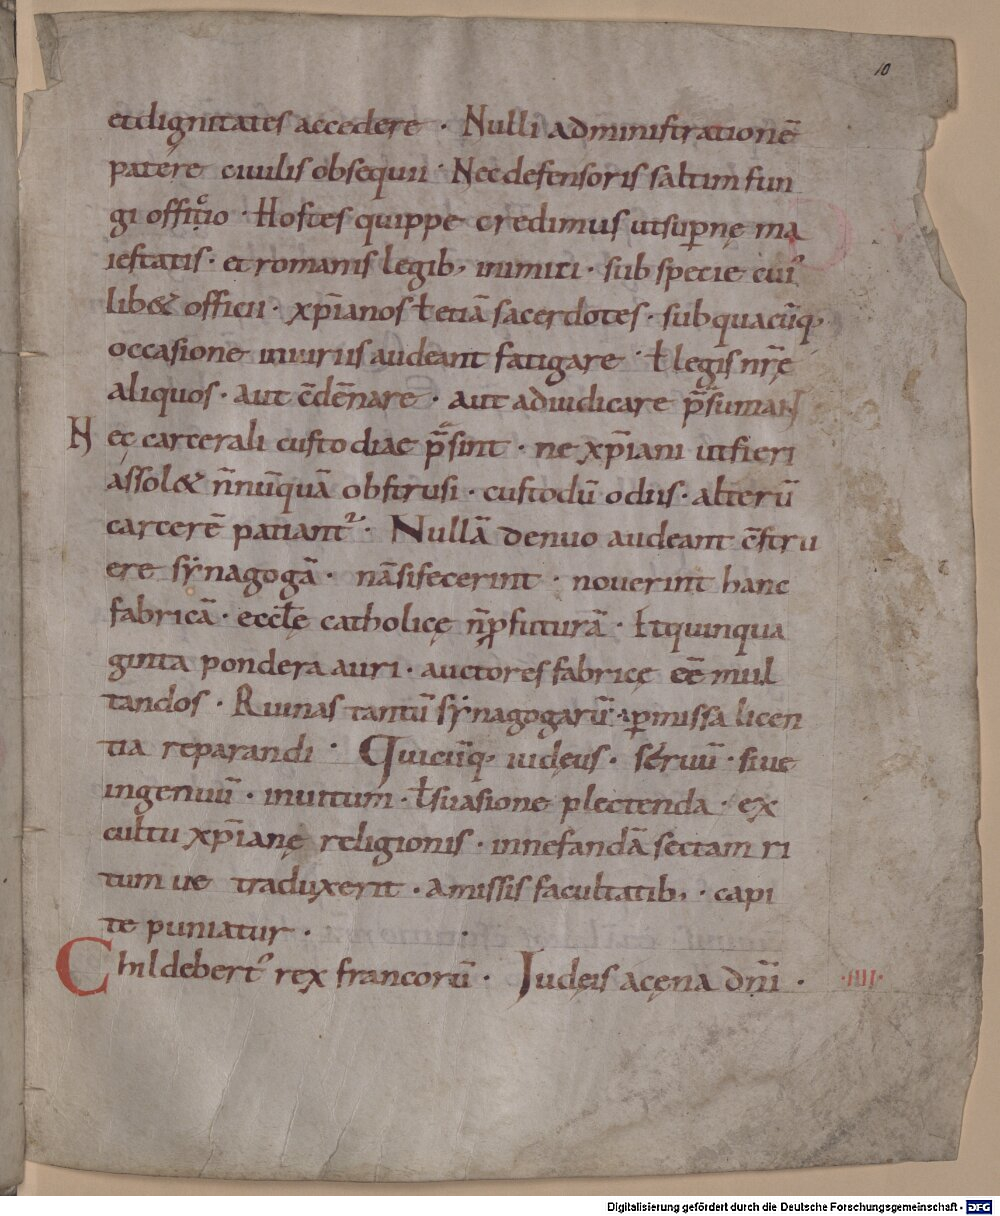 10
et dignitates accedere · Nulli administrationē
patere ciuilis obsequii · Nec defensoris saltim fun
gi offitio · Hostes quippe credimus ut sup̄nę ma
iestatis · et romanis legib; inimici · sub specie cui
lib& officii · xp̄ianos ł etiā sacerdotes · sub quacūq;
occasione iniuriis audeant fatigare · ł legis nr̄ę
aliquos · aut c̄dēnare · aut adiudicare p̄sumant
Nec carcerali custodiae p̄sint · ne xp̄iani ut fieri
assol& n̄nūquā obstrusi · custodū odiis · alterū
carcerē patiant᷑ · Nullā denuo audeant c̄stru
ere synagogā · nā si fecerint · nouerint hanc
fabricā · eccłę catholicę n̄ ꝓfuturā · ł quinqua
ginta pondera auri · auctores fabricę eē mul
tandos · Ruinas tantū synagogarū · ꝑmissa licen
tia reparandi · Quicūq; iudęus · seruū · siue
ingenuū · inuitum · ł suasione plectenda · ex
cultu xp̄ianę religionis · in nefandā sectam ri
tum ue traduxerit · amissis facultatib; · capi
te puniatur ·
Childebertꝰ rex francorū · Iudęis a cęna dn̄i · ·IIII·
Digitalisierung gefördert durch die Deutsche Forschungsgemeinschaft - DFG